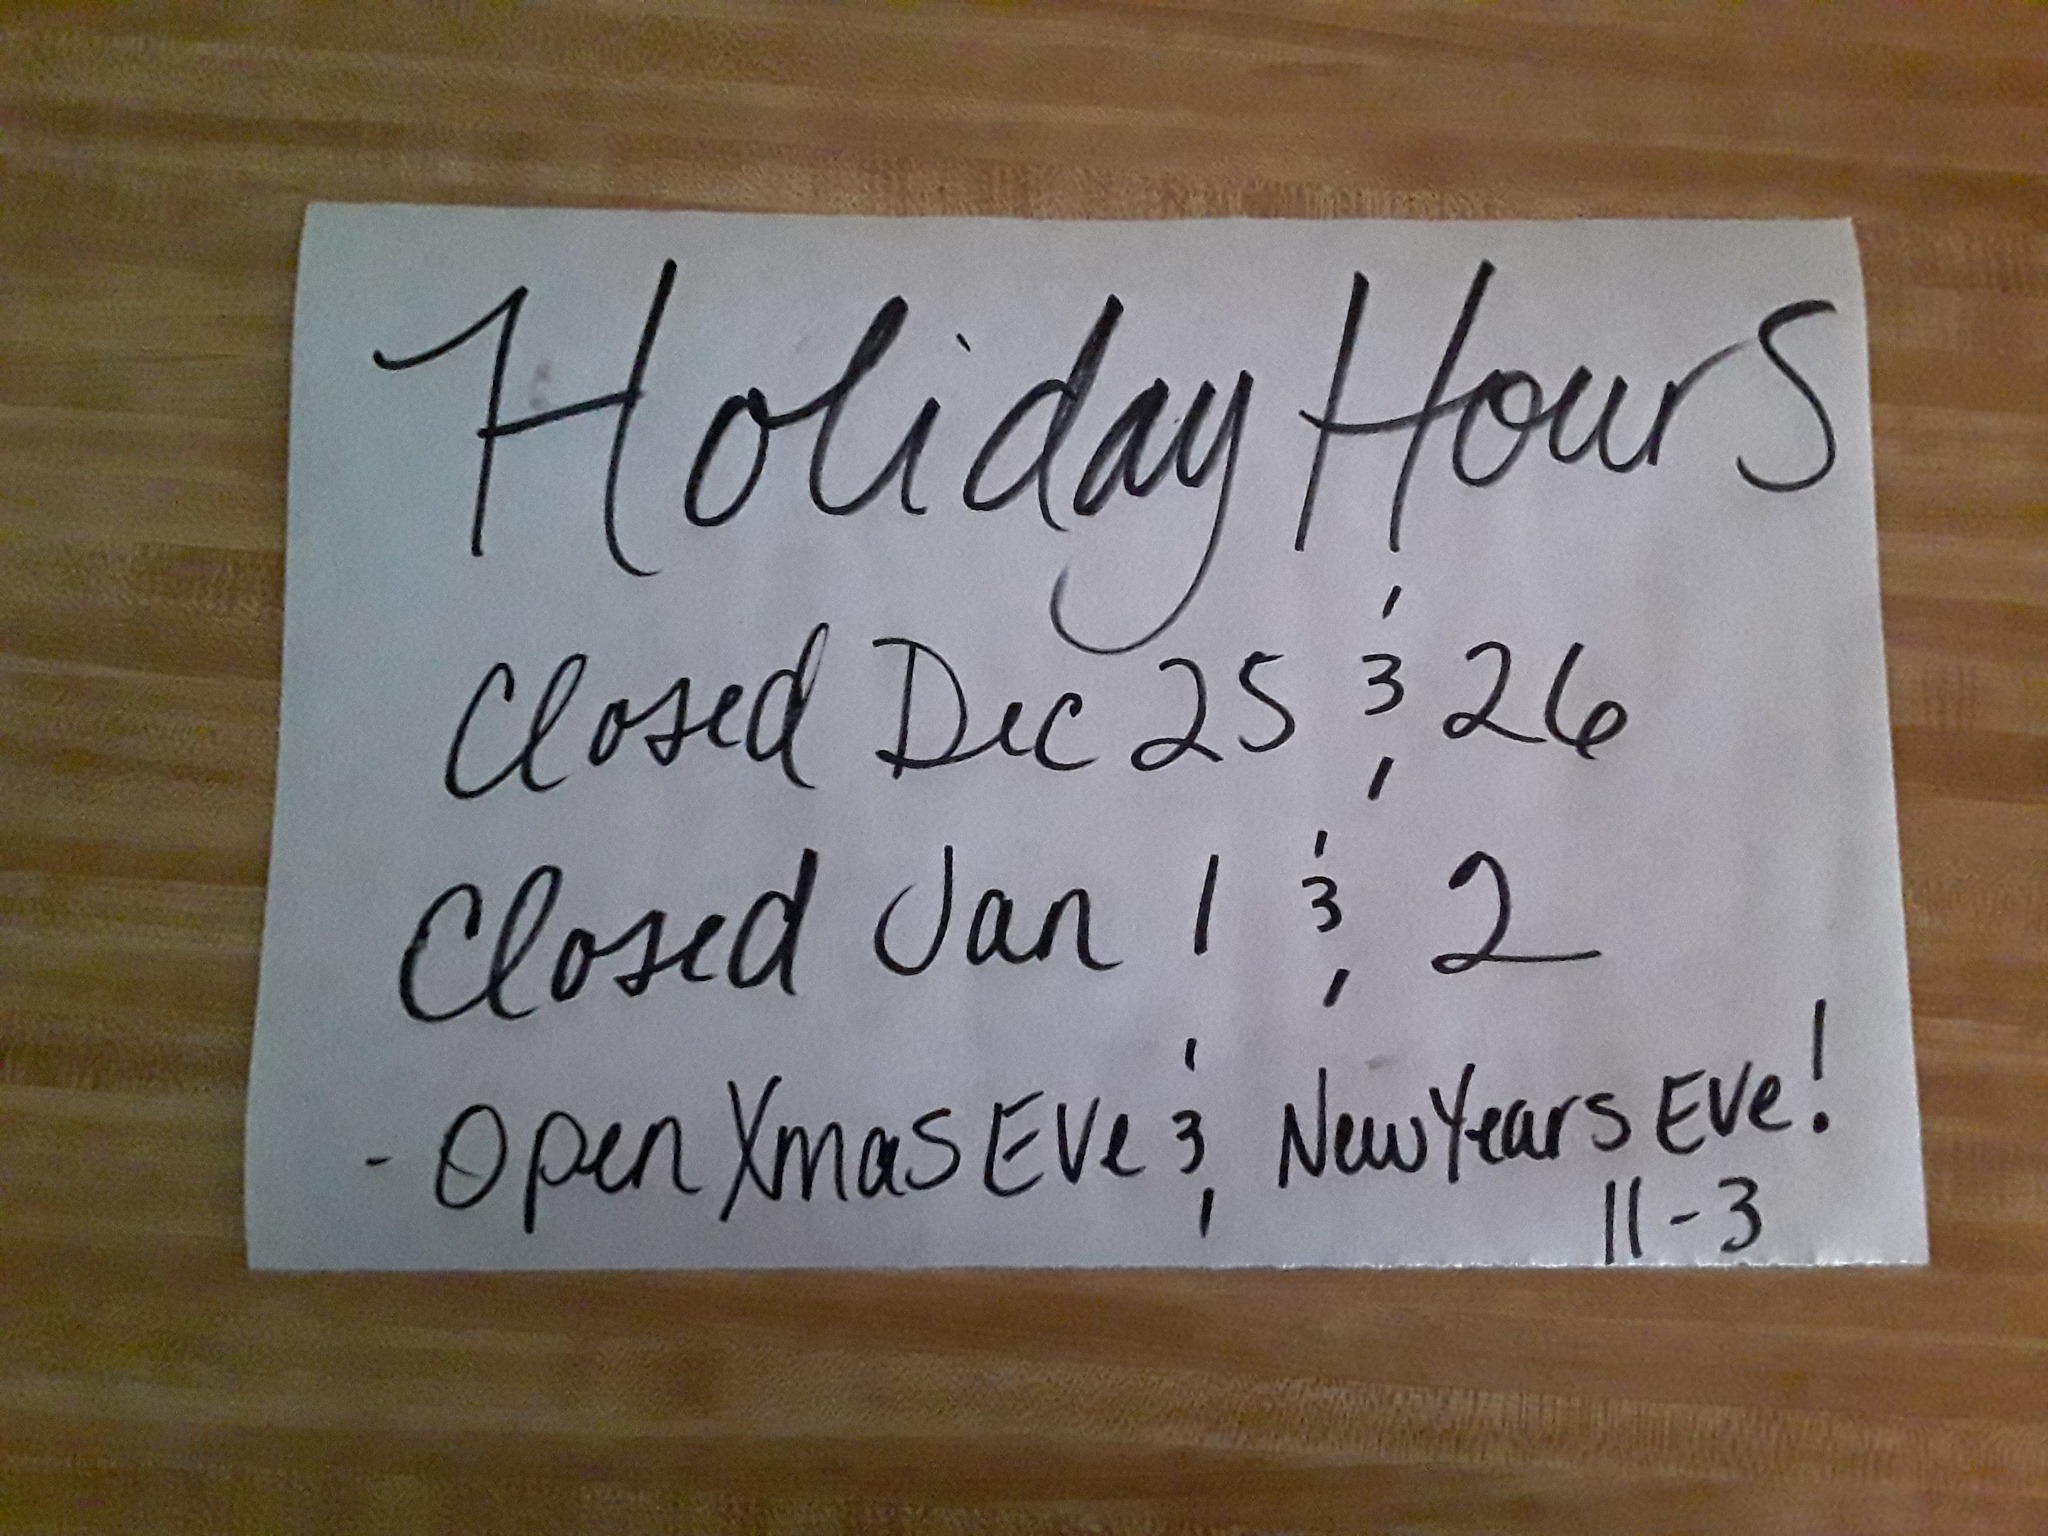 Holiday Hours
Closed Dec 25 & 26
Closed Jan 1 & 2
- Open Xmas Eve & New Years Eve!
11-3